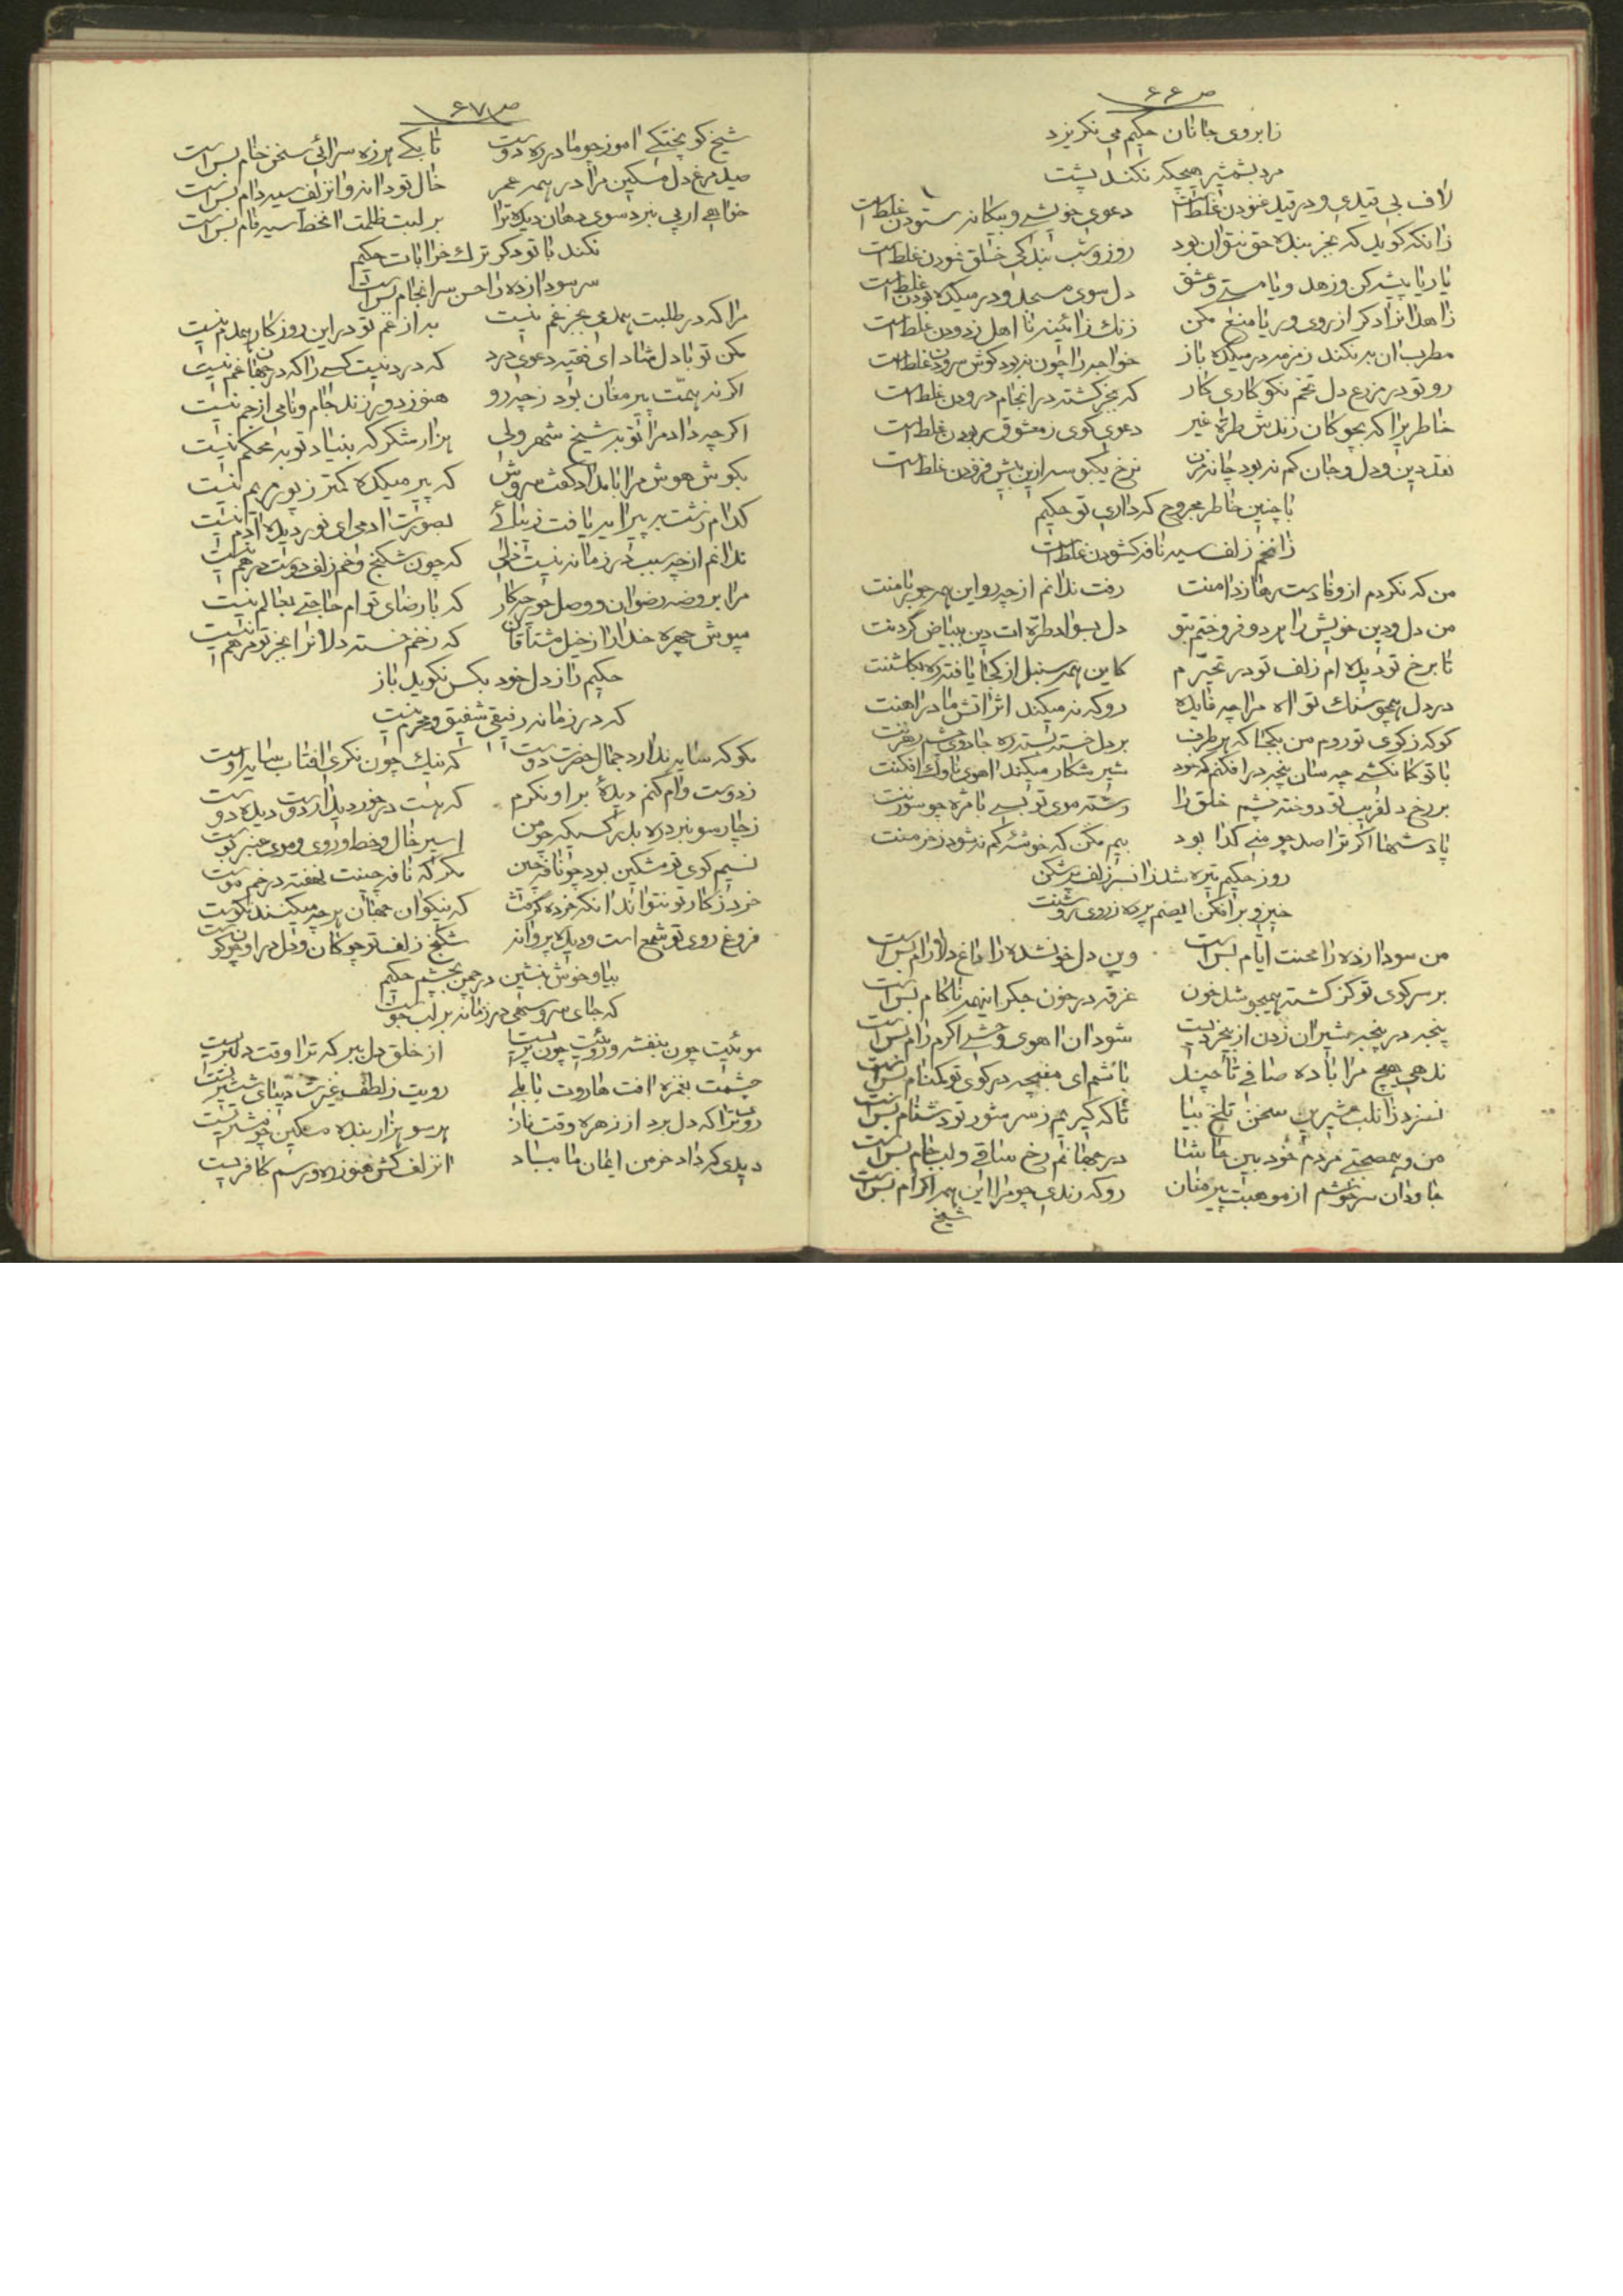 ص ۶۶
زابروی جانان حکیم می نکریزد
مرد بشمشیر هیچکه نکند پشت
لاف بی قیدی و در قید غنودن غلط است دعوی خویشی و بیکانه ستودن غلط است
زانکه کوید که بجز بنده حق نتوان بود روز و شب بندکی خلق نمودن غلط است
یا ریا پیشه کن و زهد و یا مستی و عشق دل سوی مسجد و در میکده بودن غلط است
زاهدا نزاد کر از روی و ریا منع مکن زنک زائینه نا اهل زدودن غلط است
مطرب ان به نکند زمزمه در میکده باز خواجه را چون نبود کوش سرودن غلط است
رو تو در مزرع دل تخم نکو کاری کار که بجز کشته در انجام درودن غلط است
خاطریرا که بجوکان زندش طره غیر دعوی کوی ز معشوق ربودن غلط است
نقد دین و دل و جان کم نه بود جانه مزن نرخ یکبوسه ازین بیش فزودن غلط است
با چنین خاطر مجروح که داری تو حکیم
زانخم زلف سیه نافه کشودن غلط است
من که نکردم از وفا دست رها ز دامنت رفت ندانم از چه رو این همه جو بر منت
من دل و دین خویش را هر دو فروختم بتو دل بسواد طره ات دین ببیاض کردنت
تا برخ تو دیده ام زلف تو در تحیرم کاین همه سنبل از کجا یافته ره بکلشنت
در دل همچو سنک تو اه مرا چه فایده رو که نه میکند اثر اتش ما در اهنت
کو که ز کوی تو روم من بکجا که هر طرف بر دل خسته بسته ره جادوی چشم رهزنت
با تو کمانکشی چه سان پنجه در افکنم که خود شیر شکار میکند اهوی ناوک افکنت
بر رخ دلفریب تو دوخته چشم خلق را رشته موی تو بسی با مژه چو سوزنت
پادشها اکر ترا صد چو منی کدا بود بیم مکن که خوشهٔ کم نه شود ز خرمنت
روز حکیم تیره شد زانسر زلف پرشکن
خیز و برافکن ایصنم پرده ز روی روشنت
من سودا زده را محنت ایام بس است وین دل خونشده را داغ دلارام بس است
بر سر کوی تو کز کشته همیجو شد خون غرقه در خون جکر اینهمه ناکام بس است
پنجه در پنجه شیران زدن از بیخردیست شود ان اهوی وحشی اکرم رام بس است
ندهی هیچ مرا باده صافی تا چند باشم ای مغبچه در کوی تو بدنام بس است
نسزد زانلب شیرین سخن تلخ بیا تا که کیریم ز سر شور تو دشنام بس است
من و همصحبتی مردم خود بین حاشا در جهانم رخ ساقی و لب جام بس است
جاودان سرخوشم از موهبت پیر مغان رو که رندی چو مرا این همه اکرام بس است
شیخ
ص ۶۷
شیخ کو پختکی اموز چو ما در ره دوست تا بکی هرزه سرائی سخن خام بس است
صید مرغ دل مسکین مرا در همه عمر خال تو دانه و انزلف سیه دام بس است
خواهی ار پی نبرد سوی دهان دیکه ترا بر لبت ظلمت انخط سیه فام بس است
نکند با تو دکر ترک خرابات حکیم
سر سودا زده را حسن سرانجام بس است
مرا که در طلبت همدمی بجز غم نیست به از غم تو در این روزکار همدم نیست
مکن تو با دل شاد ای فقیه دعوی درد که درد نیست کسی را که در جهان غم نیست
اکر نه همّت پیر مغان بود ز چه رو هنوز دور زند جام و نامی از جم نیست
اکر چه داد مرا توبه شیخ شهر ولی هزار شکر که بنیاد توبه محکم نیست
بکوش هوش مرا بامداد کفت سروش که پیر میکده کمتر ز پور مریم نیست
کدام زشت به پیرایه یافت زیبائی بصورت ادمی ای نور دیده ادم نیست
ندانم از چه سبب در زمانه نیست دلی که چون شکنج و خم زلف دوست درهم نیست
مرا بروضه رضوان و وصل حور چه کار که با رضای توام حاجتی بعالم نیست
مپوش چهره خدا را از خیل مشتاقان که زخم خسته دلانرا بجز تو مرهم نیست
حکیم راز دل خود بکس نکوید باز
که در زمانه رفیقی شفیق و محرم نیست
مکو که سایه ندارد جمال حضرت دوست که نیک چون نکری افتاب سایه اوست
ز دوست وام کنم دیدهٔ بر او نکرم که هست در خور دیدار دوست دیده دوست
ز چار سو نبرد ره بدر کسیکه چو من اسیر خال و خط و روی و موی عنبر بوست
نسیم کوی تو مشکین بود چو نافه چین مکر که نافه چینت نهفته در خم موست
خرد ز کار تو نتواند انکه خرده کرفت که نیکوان جهان هر چه میکنند نکوست
فروغ روی تو شمع است و دیده پروانه شکنج زلف تو چوکان و دل در او چون کوست
بیا و خوش بنشین در چمن بچشم حکیم
که جای سرو سهی در زمانه بر لب جوست
موئیت چون بنفشه و روئیت چون پریست از خلق دل ببر که ترا وقت دلبریست
چشمت بغمزه افت هاروت بابلی رویت ز لطف غیرت دیبای ششتریست
روی ترا که دل برد از زهره وقت ناز هر سو هزار بنده مسکین چو مشتریست
دیدی که داد خرمن ایمان ما بباد انزلف کش هنوز ره و رسم کافریست